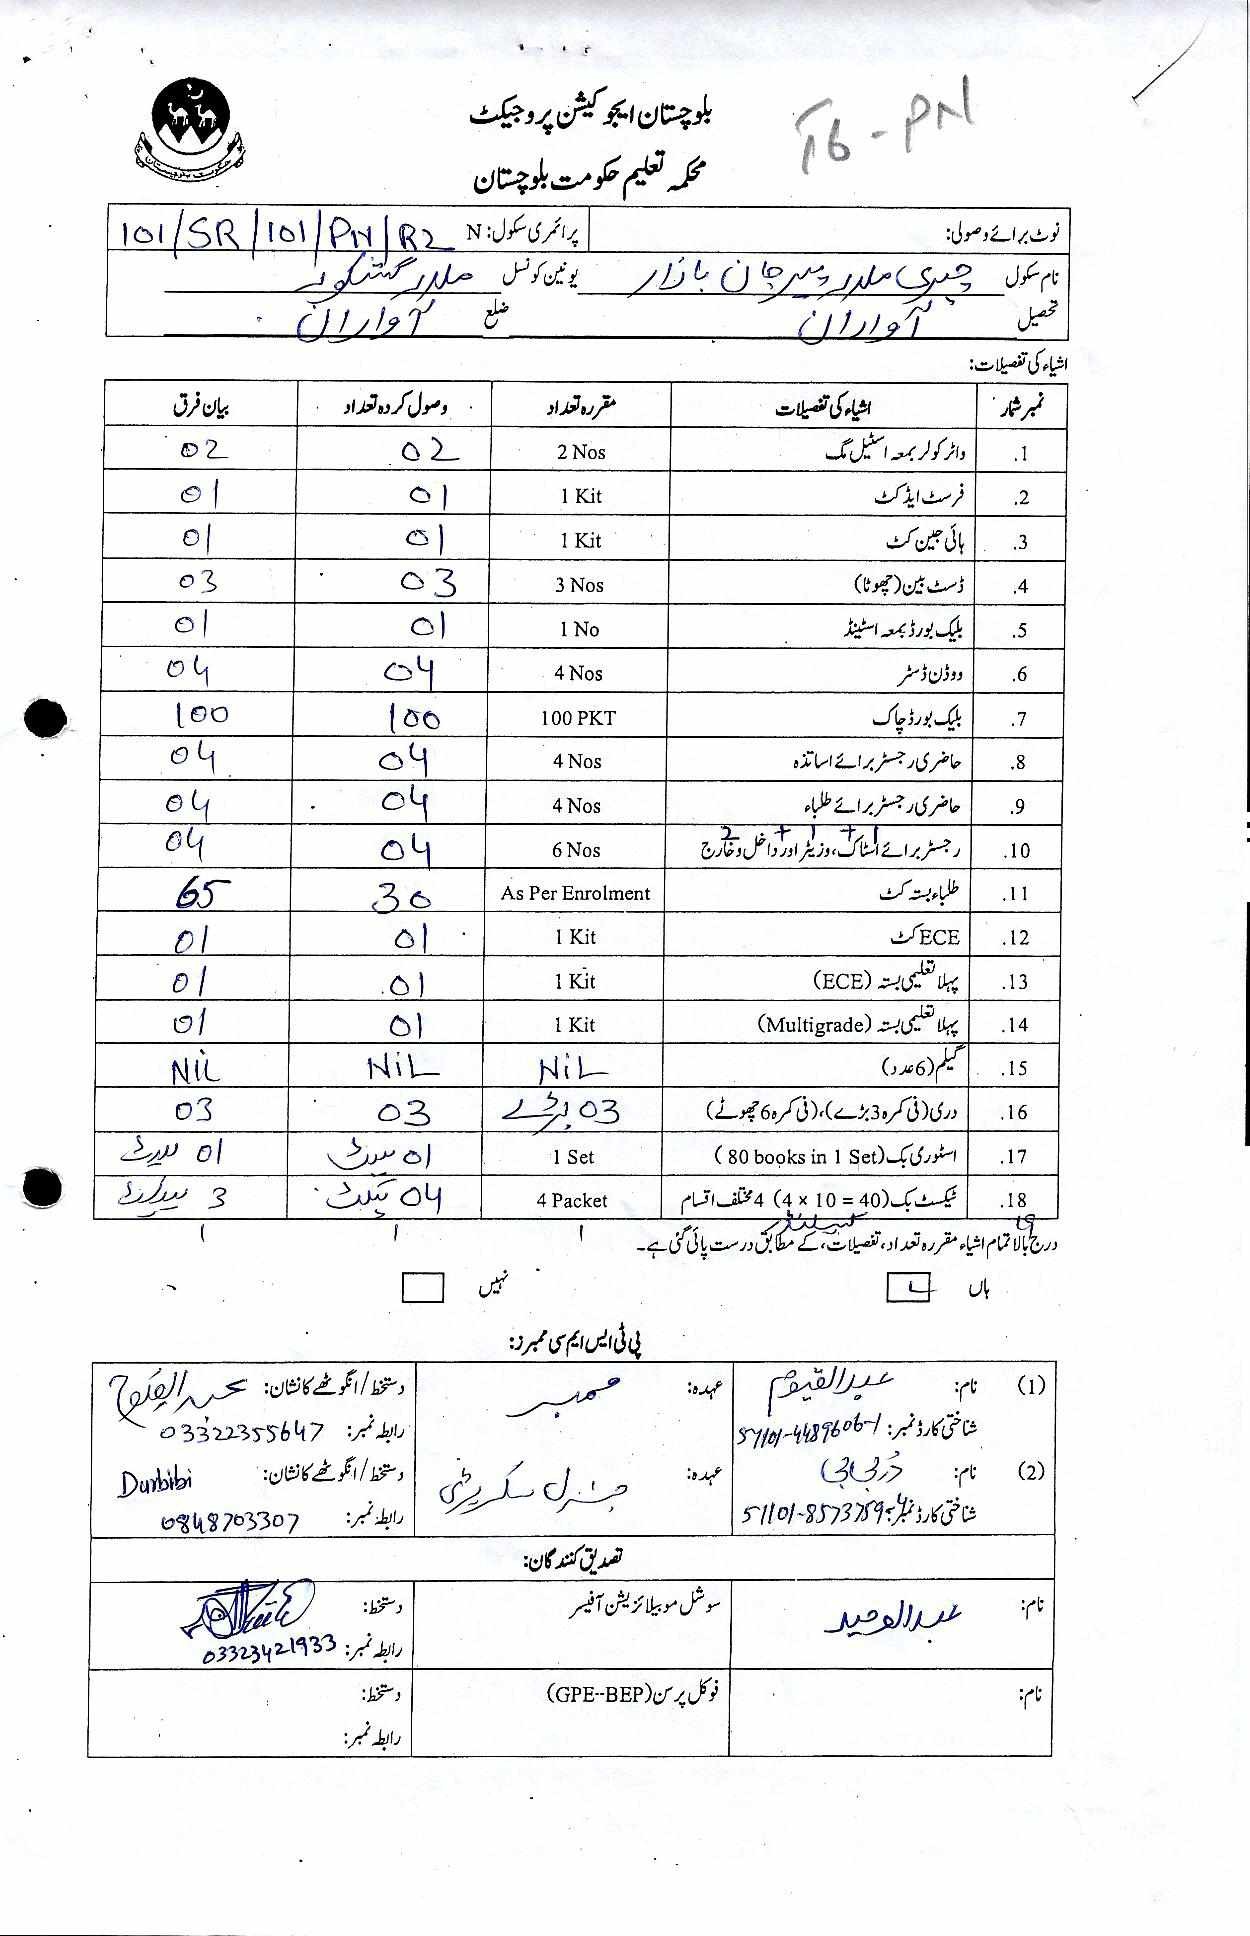 بلوچستان ایجوکیشن پروجیکٹ
T6-PN
محکمہ تعلیم حکومت بلوچستان
حکومت بلوچستان
نوٹ برائے وصولی: پرائمری سکول: N 101/SR/101/PN/R2
نام سکول چیری ملار پیر جان بازار یونین کونسل ملار گشکور
تحصیل آواران ضلع آواران
اشیاء کی تفصیلات:
نمبر شمار اشیاء کی تفصیلات مقررہ تعداد وصول کردہ تعداد بیان فرق
1. واٹر کولر بمعہ اسٹیل مگ 2 Nos 02 02
2. فرسٹ ایڈ کٹ 1 Kit 01 01
3. ہائی جین کٹ 1 Kit 01 01
4. ڈسٹ بین (چھوٹا) 3 Nos 03 03
5. بلیک بورڈ بمعہ اسٹینڈ 1 No 01 01
6. ووڈن ڈسٹر 4 Nos 04 04
7. بلیک بورڈ چاک 100 PKT 100 100
8. حاضری رجسٹر برائے اساتذہ 4 Nos 04 04
9. حاضری رجسٹر برائے طلباء 4 Nos 04 04
2 + 1 + 1
10. رجسٹر برائے اسٹاک، وزیٹر اور داخل و خارج 6 Nos 04 04
11. طلباء بستہ کٹ As Per Enrolment 30 65
12. ECE کٹ 1 Kit 01 01
13. پہلا تعلیمی بستہ (ECE) 1 Kit 01 01
14. پہلا تعلیمی بستہ (Multigrade) 1 Kit 01 01
15. گیلم (6 عدد) NiL NiL NiL
16. دری (فی کمرہ 3 بڑے)، (فی کمرہ 6 چھوٹے) 03 بڑے 03 03
17. اسٹوری بک (80 books in 1 Set) 1 Set 01 سیٹ 01 سیٹ
18. ٹیکسٹ بک (4 x 10 = 40) 4 مختلف اقسام 4 Packet 04 پیکٹ 3
19 1 1 1
درج بالا تمام اشیاء مقررہ تعداد، تفصیلات، کے مطابق درست پائی گئی ہے۔
ہاں نہیں
پی ٹی ایس ایم سی ممبرز:
(1) نام: عبدالقیوم عہدہ: ممبر دستخط/انگوٹھے کا نشان: عبدالقیوم
شناختی کارڈ نمبر: 51101-4489606-1 رابطہ نمبر: 03322355647
(2) نام: دربی بی عہدہ: جنرل سکریٹری دستخط/انگوٹھے کا نشان: Durbibi
شناختی کارڈ نمبر: 51101-8573759-4 رابطہ نمبر: 0848703307
تصدیق کنندگان:
نام: عبدالوحید سوشل موبیلائزیشن آفیسر دستخط:
رابطہ نمبر: 03323421933
نام: فوکل پرسن (GPE--BEP) دستخط:
رابطہ نمبر: